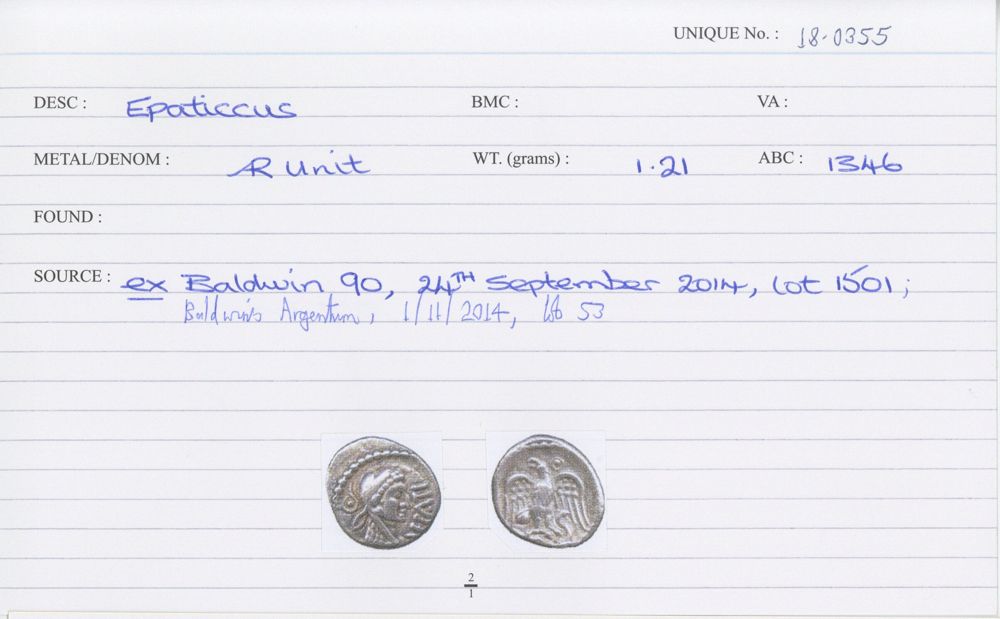 UNIQUE No. : 18·0355
DESC : Epaticcus BMC : VA :
METAL/DENOM : AR Unit WT. (grams) : 1·21 ABC : 1346
FOUND :
SOURCE : ex Baldwin 90, 24TH September 2014, Lot 1501;
Baldwin's Argentum, 1/11/2014, lot 53
2
1